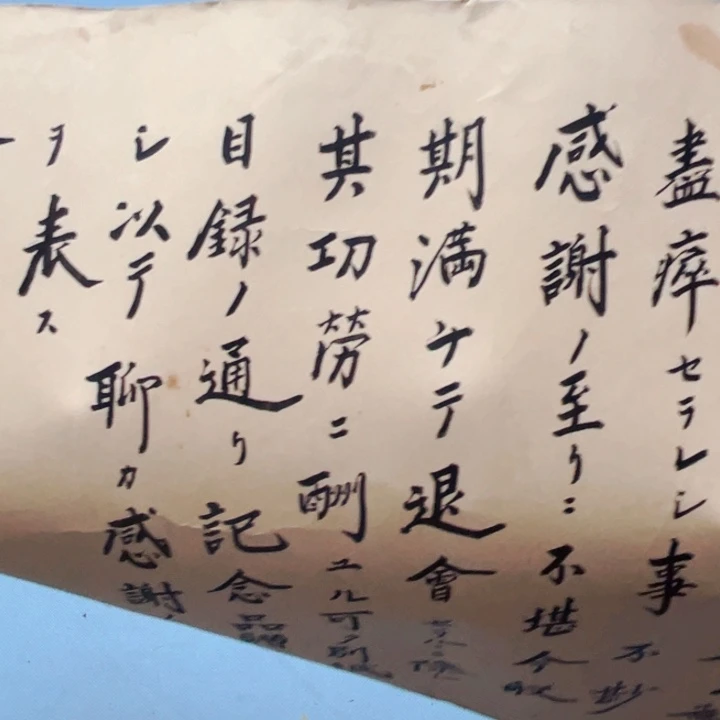 盡瘁セラレシ事不尠
感謝ノ至リニ不堪今般
期満チテ退會
其功労ニ酬ユル可ク
目録ノ通リ記念品
シ以テ聊カ感謝ノ
ヲ表ス